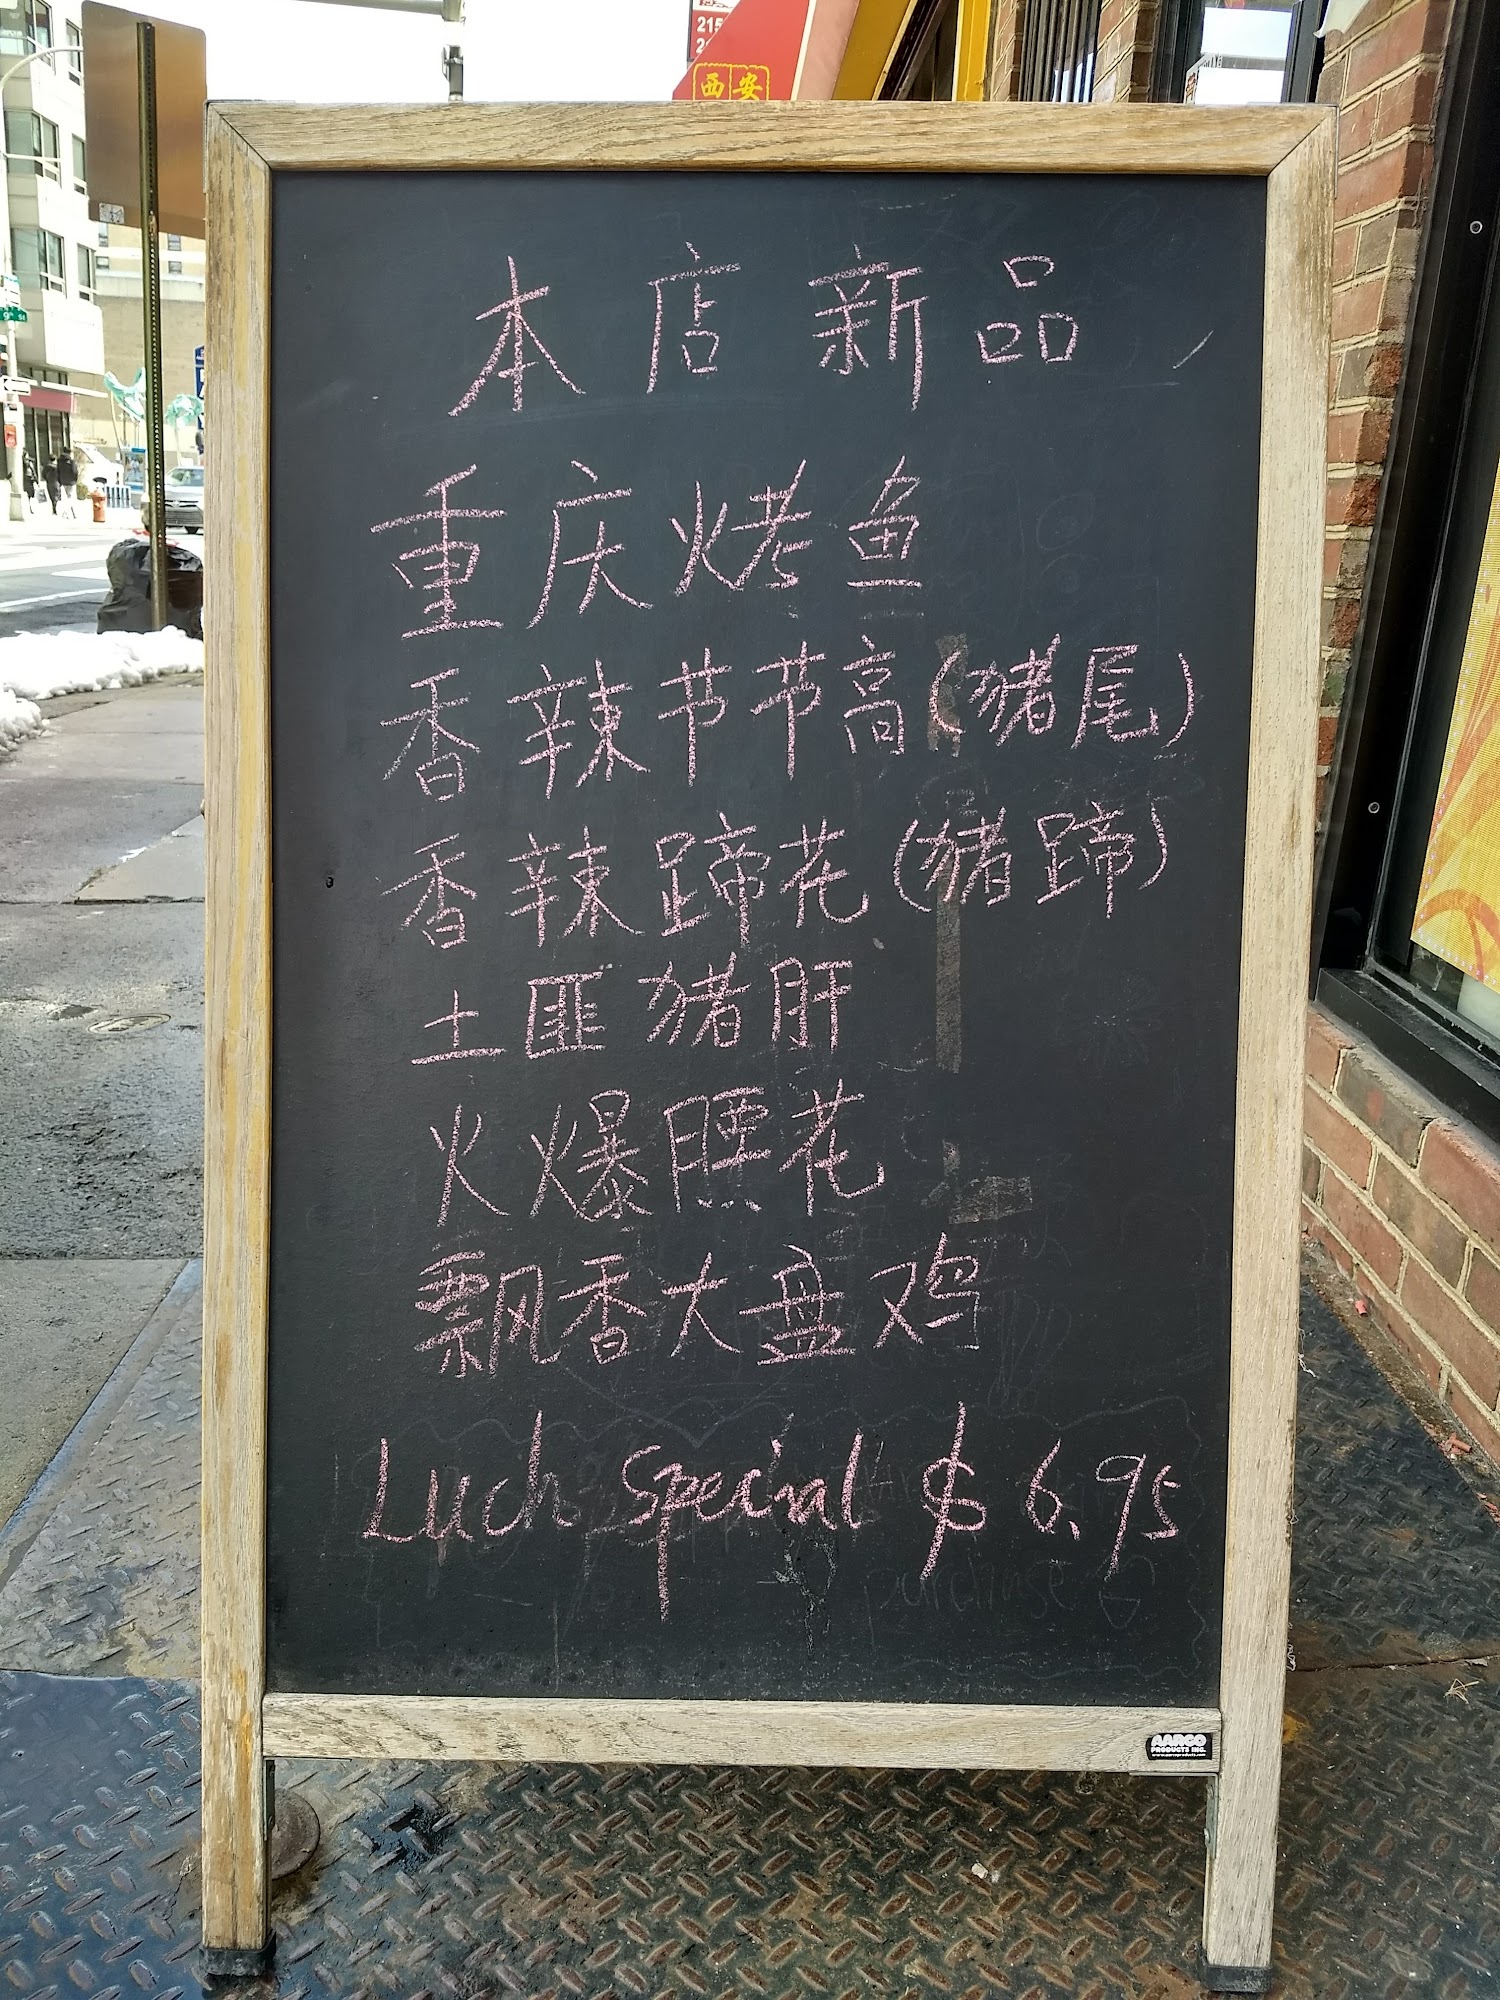 215
西安
9th St
本店新品
重庆烤鱼
香辣节节高(猪尾)
香辣蹄花(猪蹄)
土匪猪肝
火爆腰花
飘香大盘鸡
Luch special $6.95
purchase
AARCO
PRODUCTS INC.
www.aarcoproducts.com